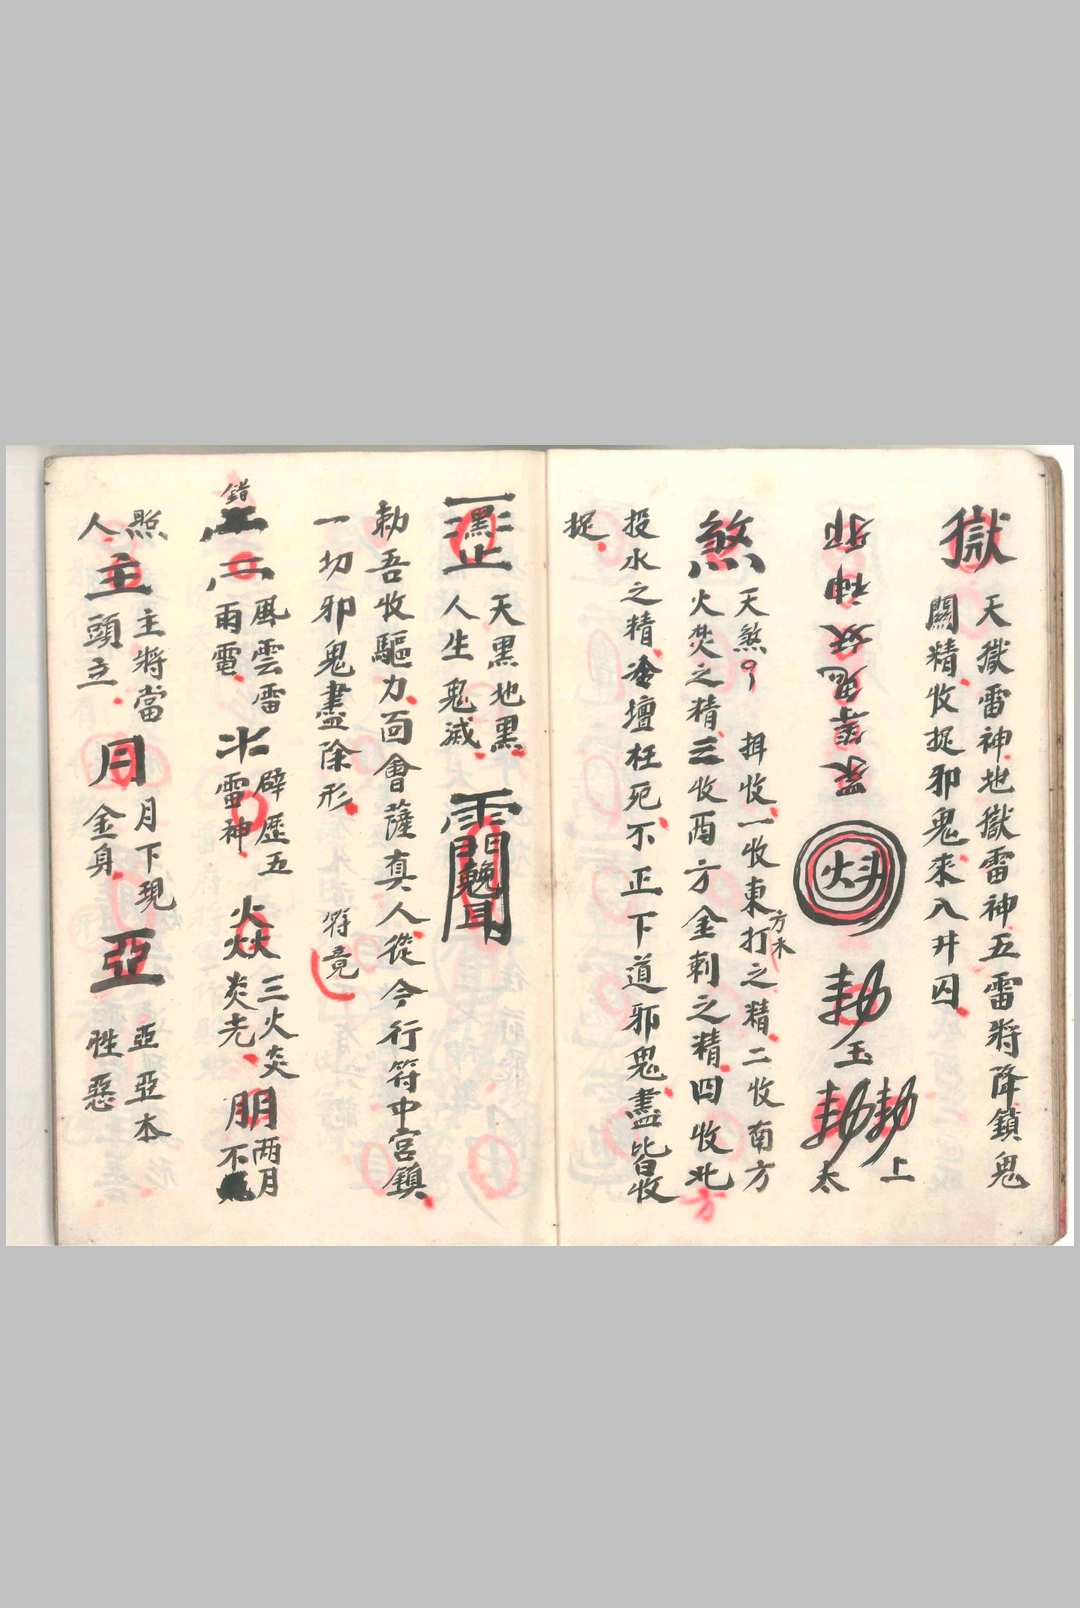 獄
天獄雷神地獄雷神五雷將降鎖鬼
關精收捉邪鬼來入井囚
邪神妖鬼等眾
勅
玉
勅勅
上
太
煞
天煞
收一收東方木打之精二收南方
火焚之精三收酉方金刺之精四收北方
投水之精
壇枉死不正下道邪鬼盡皆收
捉
天黑地黑
人生鬼滅
勅吾收驅力
會薩真人從今行符中宮鎮
一切邪鬼盡除形
符竟
錯
二
風雲雷
雨電
霹歷五
雷神
三火炎
炎光
朋
两月
不
照
人
主
主將當
頭立
月
月下現
金身
亞
亞亞本
性惡